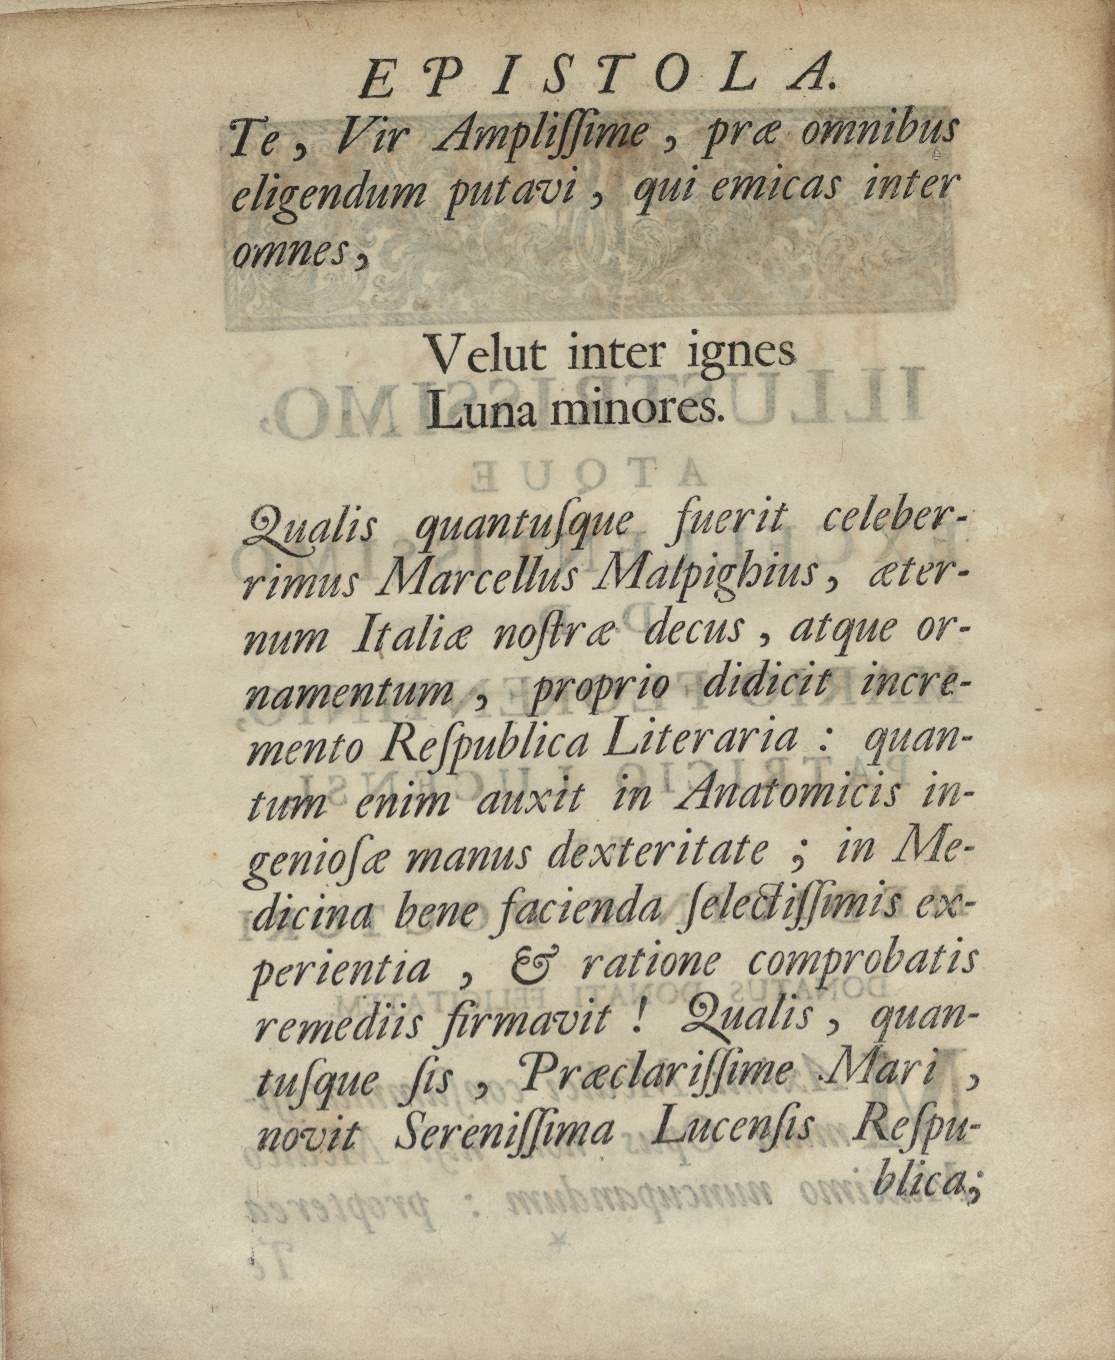 EPISTOLA.
Te, Vir Ampliſſime, præ omnibus
eligendum putavi, qui emicas inter
omnes,
Velut inter ignes
Luna minores.
Qualis quantuſque fuerit celeber-
rimus Marcellus Malpighius, æter-
num Italiæ noſtræ decus, atque or-
namentum, proprio didicit incre-
mento Reſpublica Literaria: quan-
tum enim auxit in Anatomicis in-
genioſæ manus dexteritate; in Me-
dicina bene facienda ſelectiſſimis ex-
perientia, & ratione comprobatis
remediis firmavit! Qualis, quan-
tuſque ſis, Præclariſſime Mari,
novit Sereniſſima Lucenſis Reſpu-
blica;